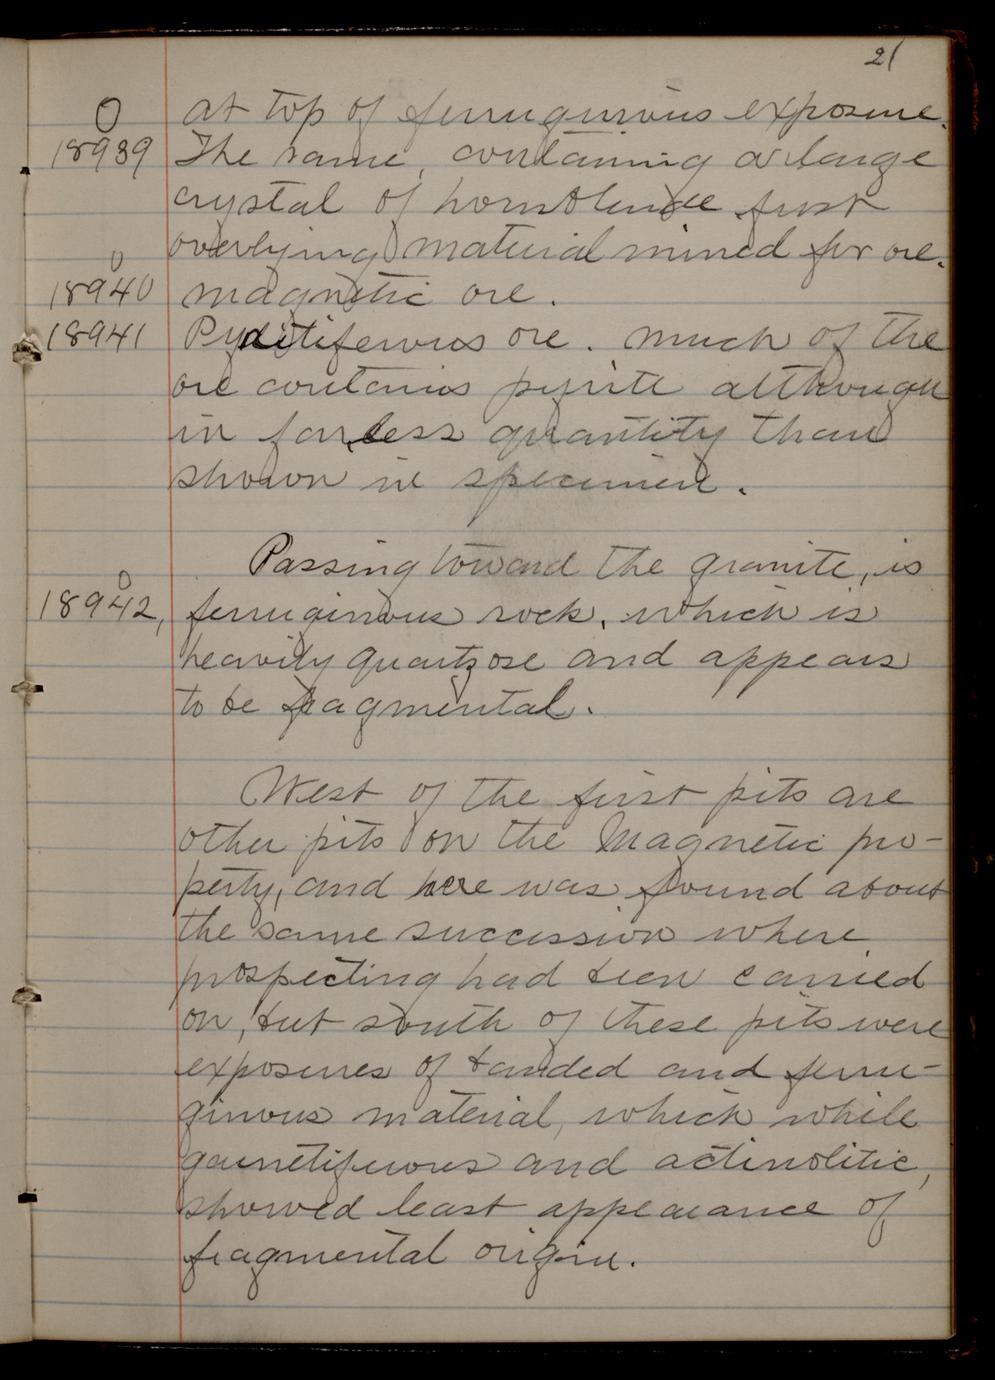 21
0 at top of ferruginous exposure.
18939 The same, containing a large
crystal of hornblende just
overlying material mined for ore.
0
18940 magnetic ore.
18941 Pyritiferous ore. Much of the
ore contains pyrite although
in far less quantity than
shown in specimen.
Passing toward the granite, is
0
18942, ferruginous rock, which is
heavily quartzose and appears
to be fragmental.
West of the first pits are
other pits on the Magnetic pro-
perty, and here was found about
the same succession where
prospecting had been carried
on, but south of these pits were
exposures of banded and ferru-
ginous material, which while
garnetiferous and actinolitic,
showed least appearance of
fragmental origin.